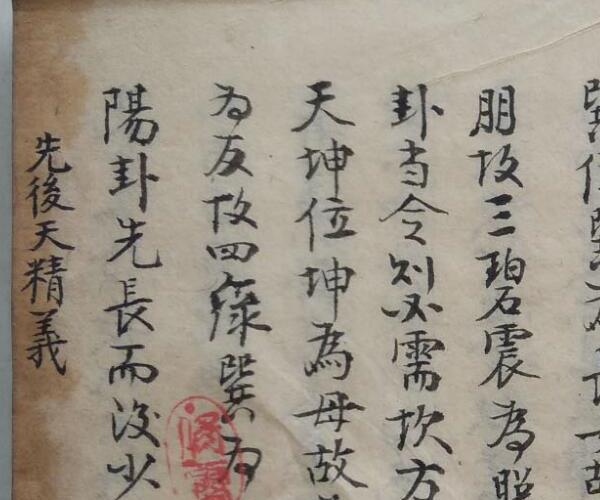 朋故三碧震為昭
卦当令则必需坎方
天坤位坤為母故
为友故四綠巽为
陽卦先長而後少
先後天精義